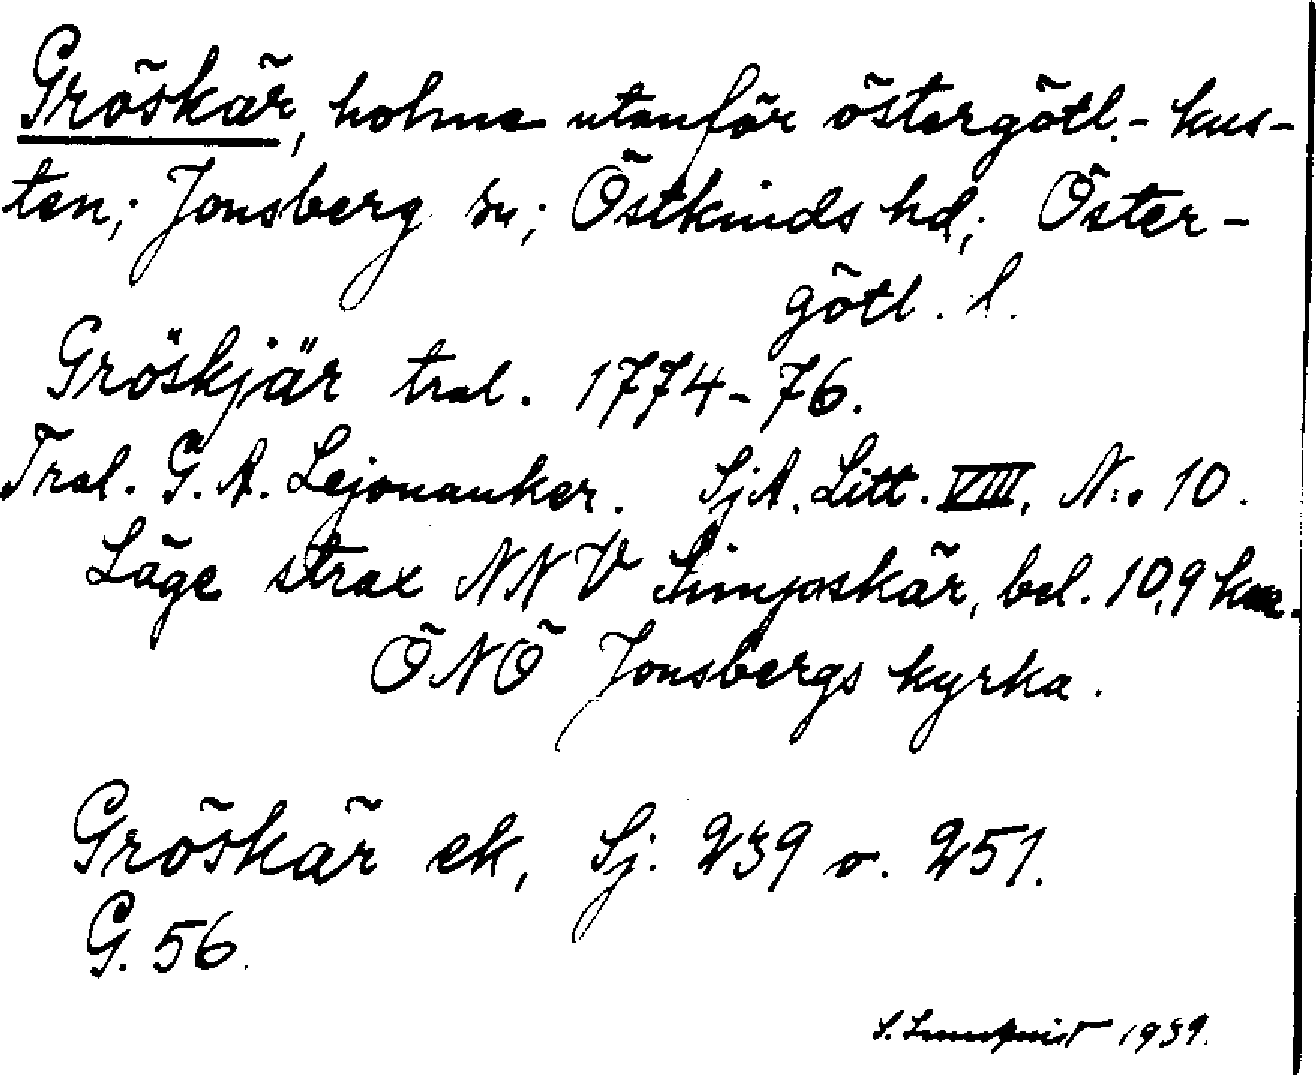 Gröskär, holme utanför östergötl.- kus-
ten; Jonsberg sn; Östkinds hd; Öster-
götl. l.
Gröskjär tral. 1774-76.
Tral. G. A. Lejonanker. SjA. Litt. VIII. N:o 10.
Läge strax NNV Simpskär, bel. 10,9 km.
ÖNÖ Jonsbergs kyrka.
Gröskär ek, Sj. 239 o. 251.
G. 56.
S. 1939.